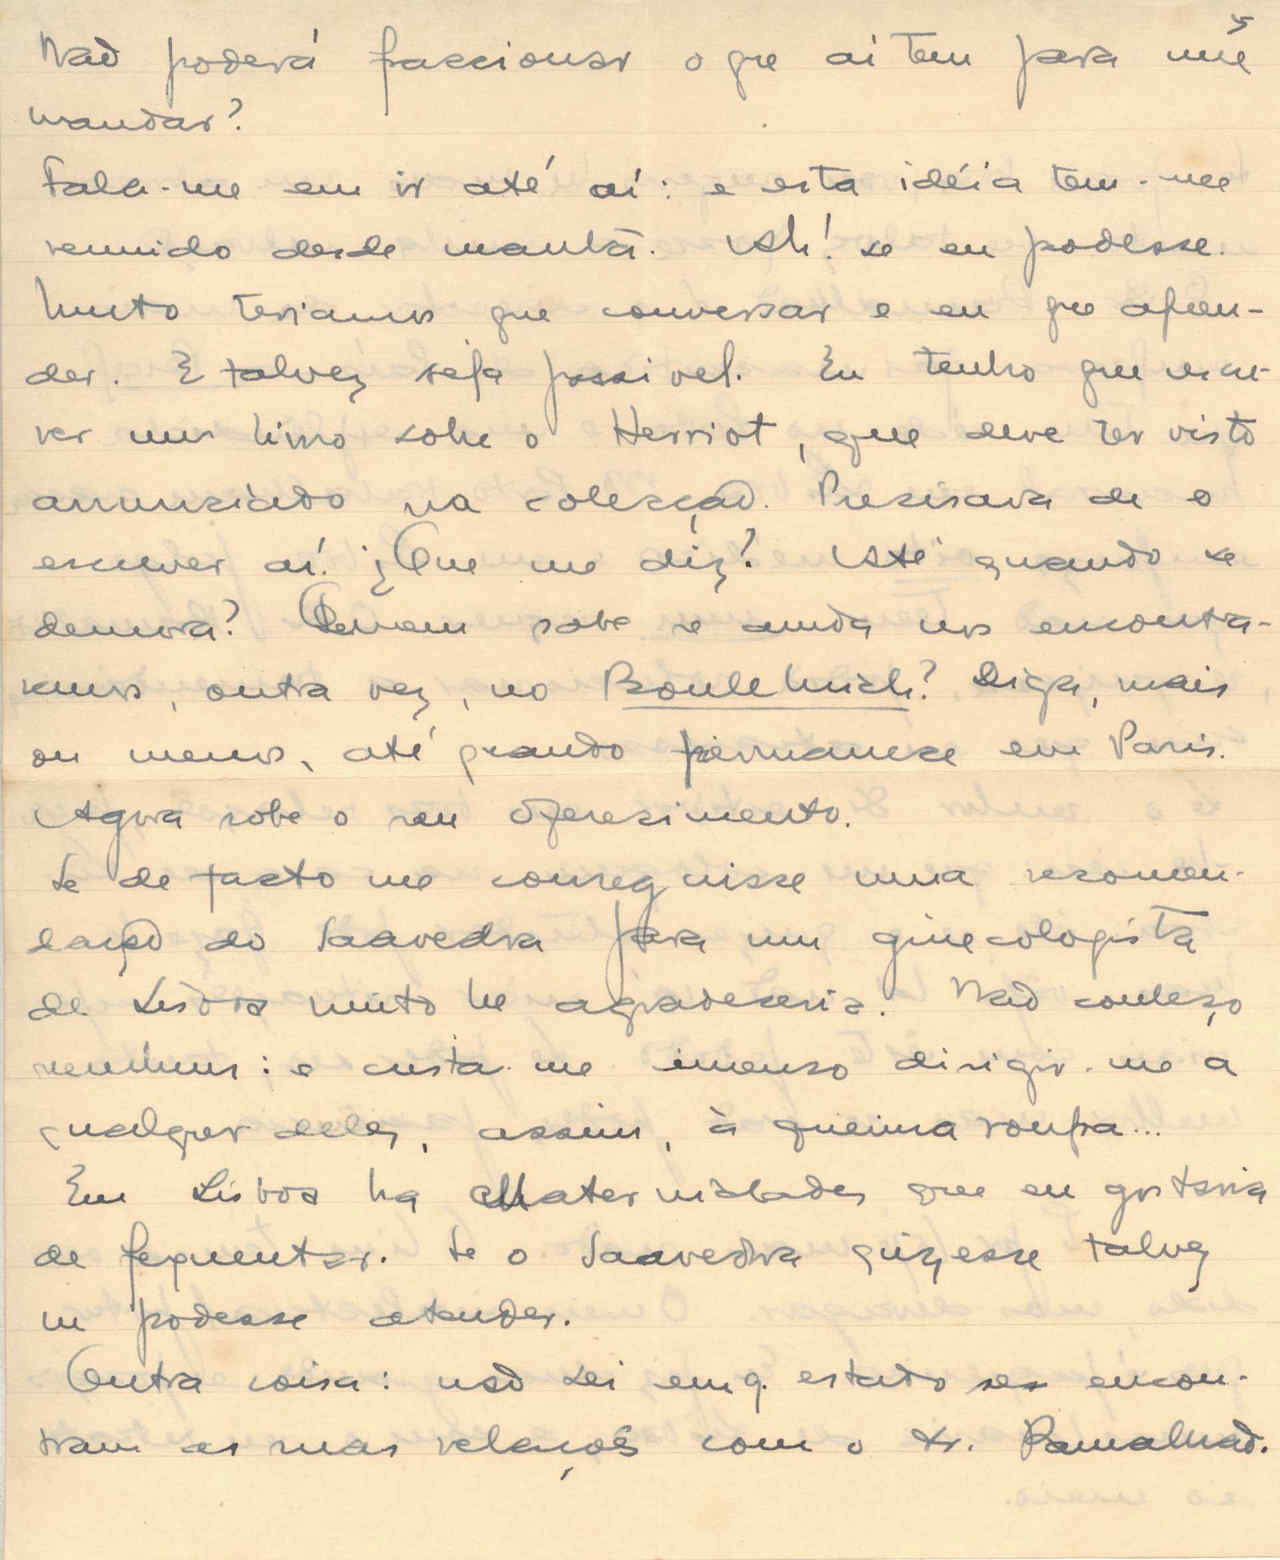 5
Não poderá fraccionar o que aí tem para me
mandar?
Fala-me em ir até aí: e esta idéia tem-me
remuido desde manhã. Ah! se eu podesse.
Muito teriamos que conversar e eu que apren-
der. E talvez seja possivel. Eu tenho que escre-
ver um livro sobre o Herriot, que deve ter visto
anunciado na colecção. Precisava de o
escrever aí. ¿Que me diz? Até quando se
demora? Quem sabe se ainda nos encontra-
remos, outra vez, no Boul'Mich? Diga, mais
ou menos, até quando permanece em Paris.
Agora sobre o seu oferecimento.
Se de facto me conseguisse uma recomen-
dação do Saavedra para um ginecologista
de Lisboa muito lhe agradeceria. Não conheço
nenhum: e custa-me imenso dirigir-me a
qualquer deles, assim, à queima roupa...
Em Lisboa ha Maternidades que eu gostaria
de frequentar. Se o Saavedra quizesse talvez
m podesse atender.
Outra coisa: não sei em q. estado se encon-
tram as suas relações com o Dr. Ramalhão.